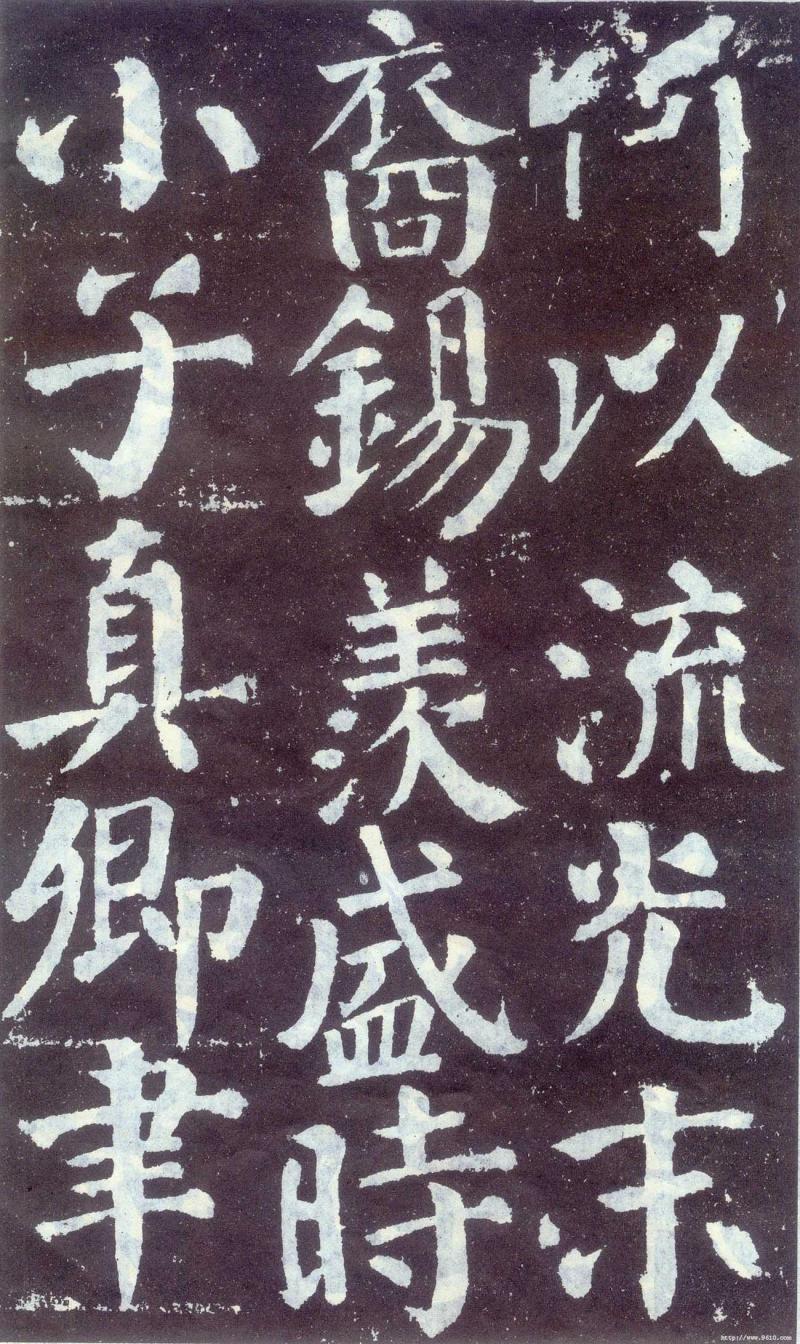 所以流光末
裔錫羨盛時
小子真卿聿
http://www.9610.com